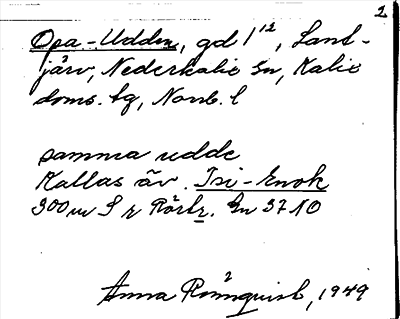 2
Opa-Udden, gd 1¹², Lant-
järv, Nederkalix sn, Kalix
doms. tg, Norrb. l
samma udde
Kallas äv. Isi-Enok
300 m S r Rörbr. En 37 NO
Anna Rönnquist, 1949